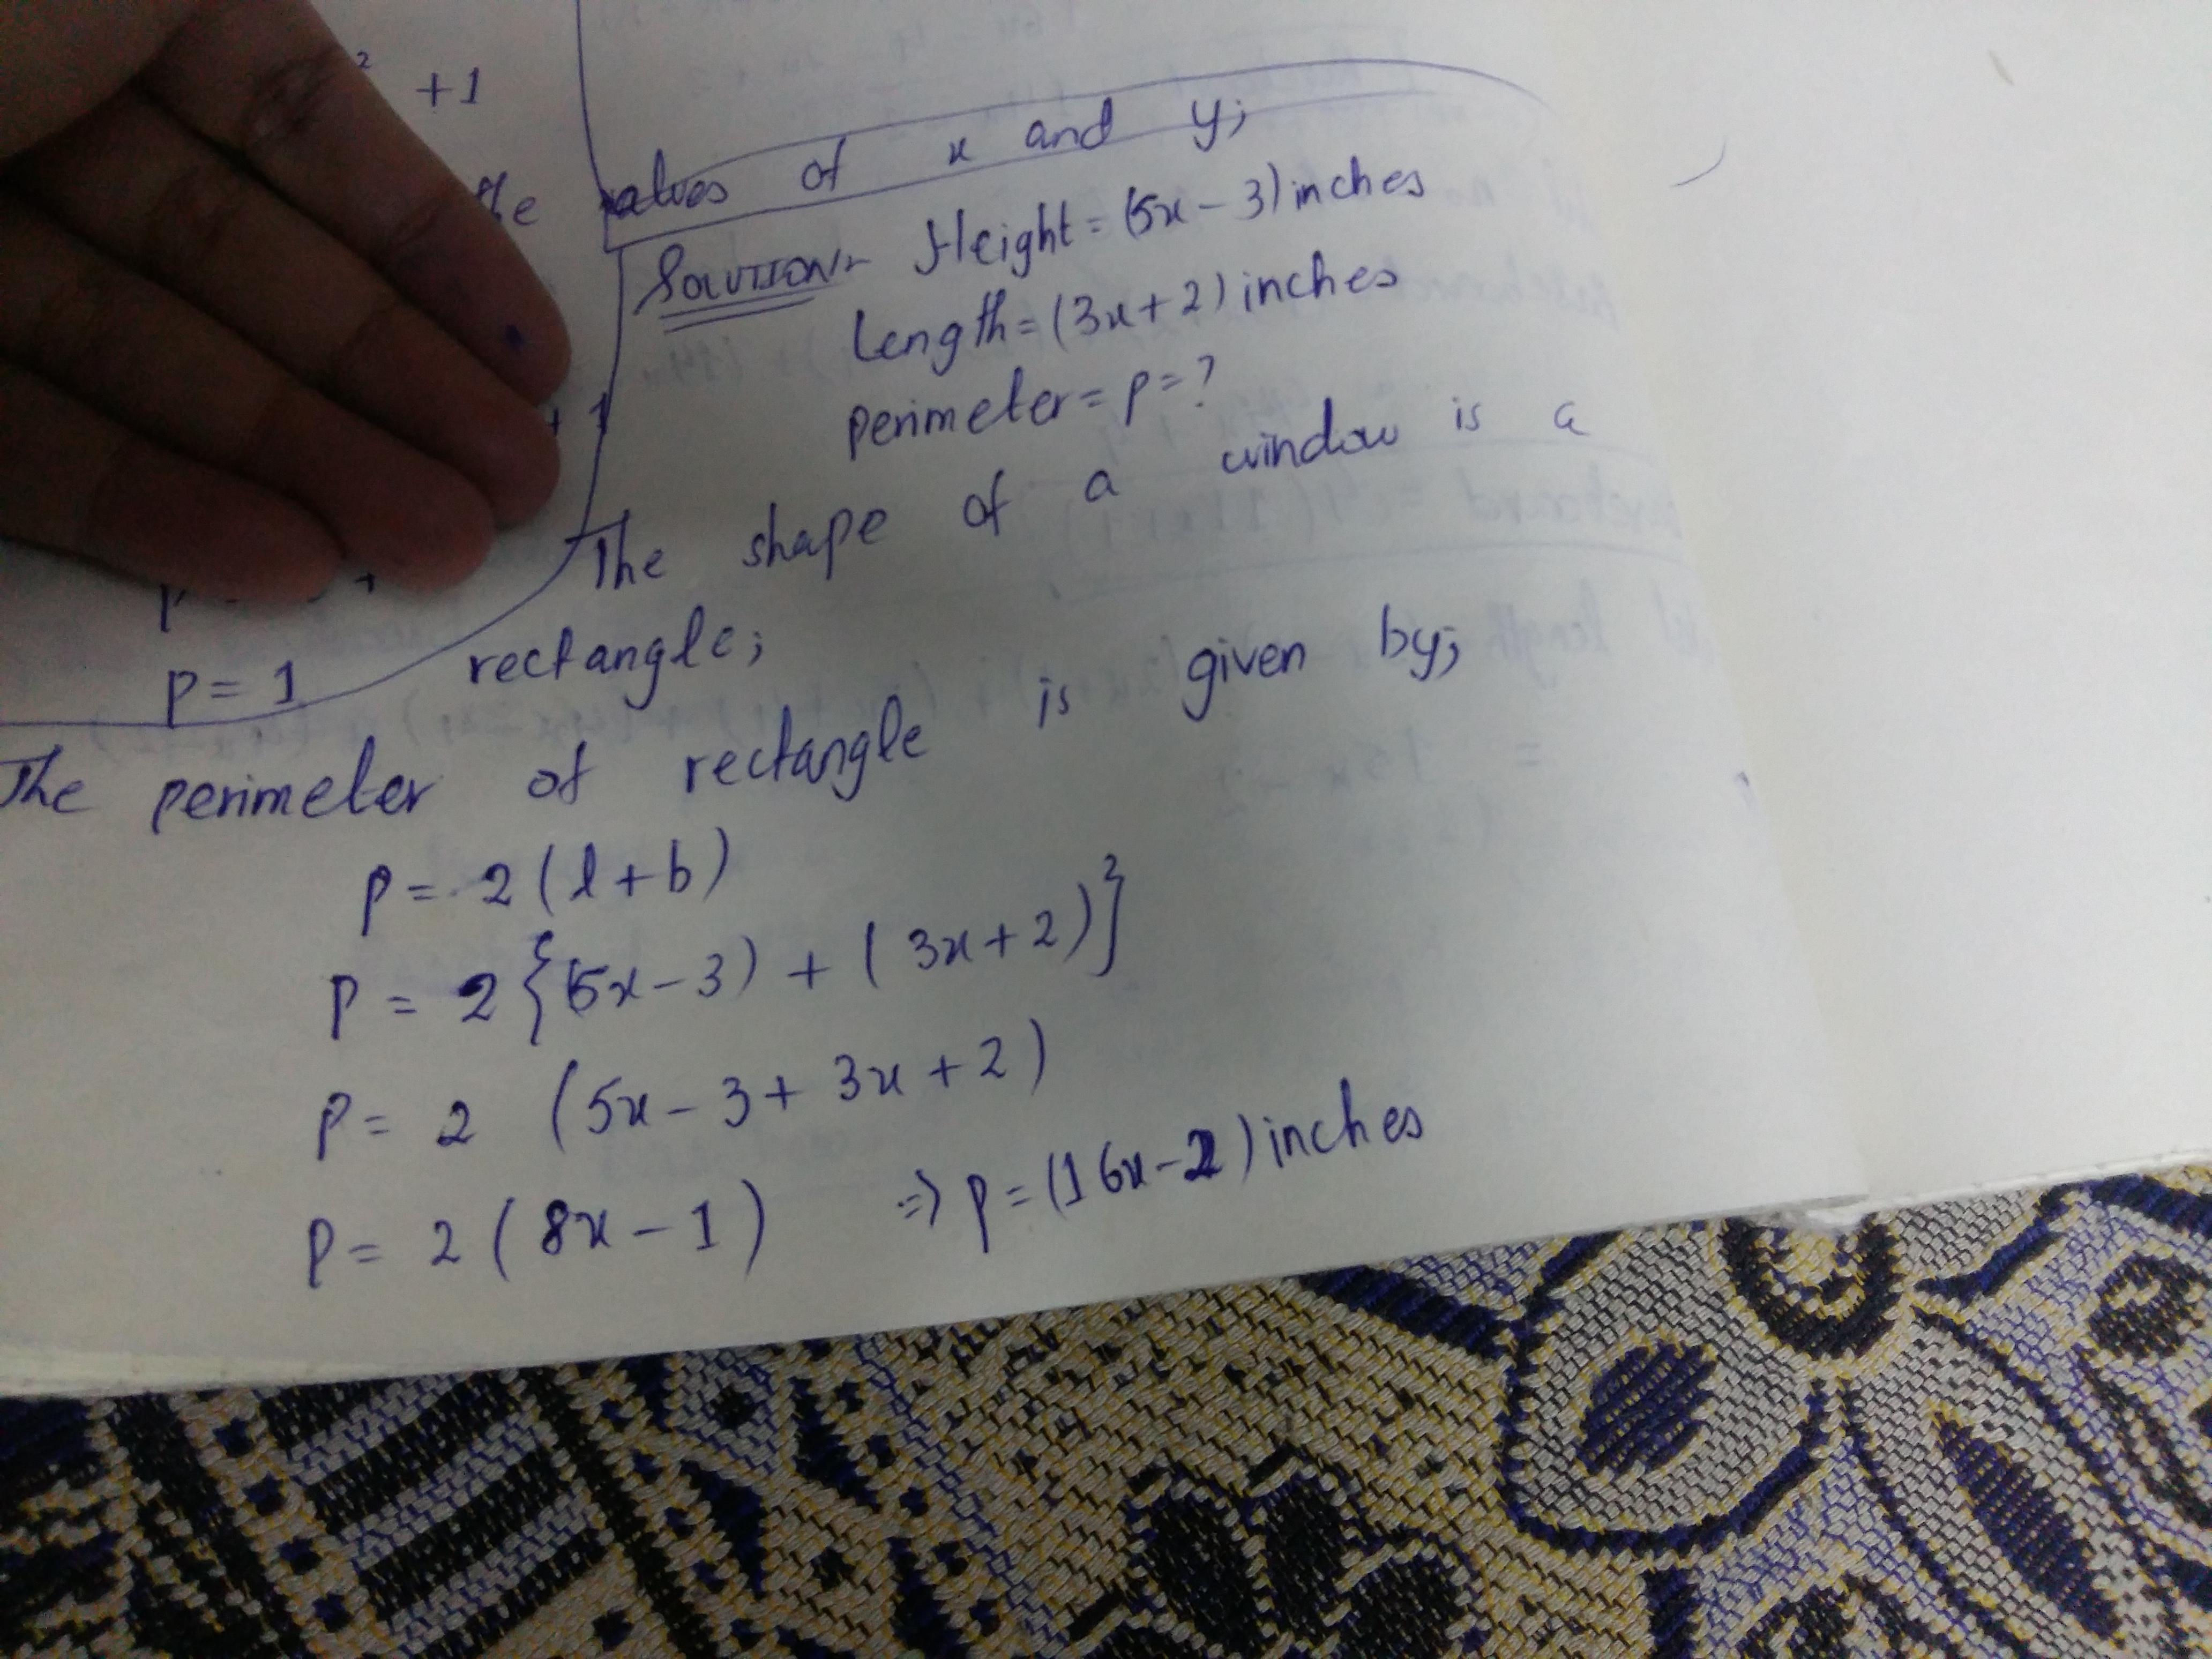 ² +1
the values of x and y;
SOLUTION:- Height = (5x - 3) inches
Length = (3x + 2) inches
perimeter = p = ?
+ 1
The shape of a window is a
p = 1
rectangle;
The perimeter of rectangle is given by;
p = 2 (l + b)
p = 2 {(5x - 3) + (3x + 2)}
p = 2 (5x - 3 + 3x + 2)
p = 2 (8x - 1) => p = (16x - 2) inches